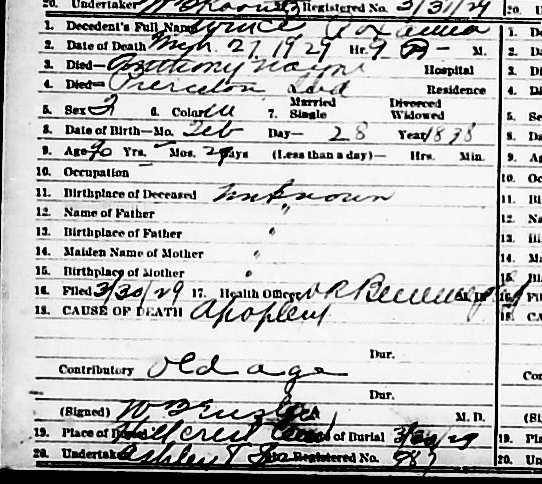 20. Undertaker Registered No. 3/31/29 20.
1. Decedent's Full Name 1. De
2. Date of Death Mch 27 1929 Hr. 9 P — M. 2. Da
3. Died— Anthony Wayne Hospital 3. Di
4. Died— Pierceton Ind Residence 4. Di
5. Sex F 6. Color W 7. Married Single Divorced Widowed 5. Se
8. Date of Birth—Mo. Feb Day— 28 Year 1838 8. Da
9. Age 90 Yrs. Mos. 29 Days (Less than a day)— Hrs. Min. 9. Ag
10. Occupation 10. Oc
11. Birthplace of Deceased Unknown 11. Bi
12. Name of Father " 12. Na
13. Birthplace of Father " 13. Bi
14. Maiden Name of Mother " 14. Ma
15. Birthplace of Mother " 15. Bi
16. Filed 3/30/29 17. Health Officer M. D. 16. Fi
18. CAUSE OF DEATH Apoplexy 18. CA
Dur.
Contributory old age Con
Dur.
(Signed) M. D. (Si
19. Place of Burial Hillcrest Cem Date of Burial 3/30/29 19. Pl
20. Undertaker Ashley T Registered No. 987 20. Un